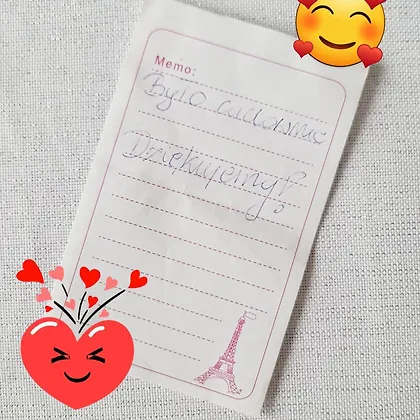 Memo:
Było cudownie
Dziękujemy!